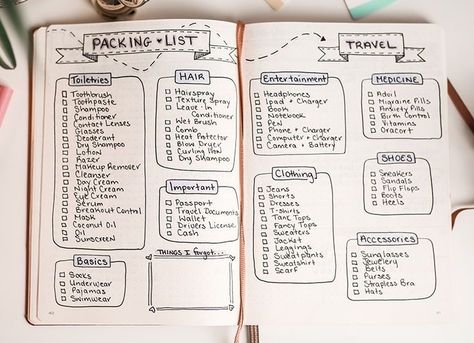 PACKING ♥ LIST
Toiletries
Toothbrush
Toothpaste
Shampoo
Conditioner
Contact Lenses
Glasses
Deoderant
Dry Shampoo
Lotion
Razer
Makeup Remover
Cleanser
Day Cream
Night Cream
Eye Cream
Serum
Breakout Control
Mask
Coconut Oil
Oil
Sunscreen
Basics
Socks
Underwear
Pajamas
Swimwear
HAIR
Hairspray
Texture Spray
Leave-In
Conditioner
Wet Brush
Comb
Heat Protector
Blow Dryer
Curling Iron
Dry Shampoo
Important
Passport
Travel Documents
Wallet
Drivers License
Cash
THINGS I forgot...
TRAVEL
Entertainment
Headphones
Ipad + Charger
Book
Notebook
Pen
Phone + Charger
Computer + Charger
Camera + Battery
Clothing
Jeans
Shorts
Dresses
T-Shirts
Tank Tops
Fancy Tops
Sweaters
Jacket
Leggings
Sweatpants
Sweatshirt
Scarf
MEDICINE
Advil
Migraine Pills
Anxiety Pills
Birth Control
Vitamins
Oracort
SHOES
Sneakers
Sandals
Flip Flops
Boots
Heels
Accessories
Sunglasses
Jewellery
Belts
Purses
Strapless Bra
Hats